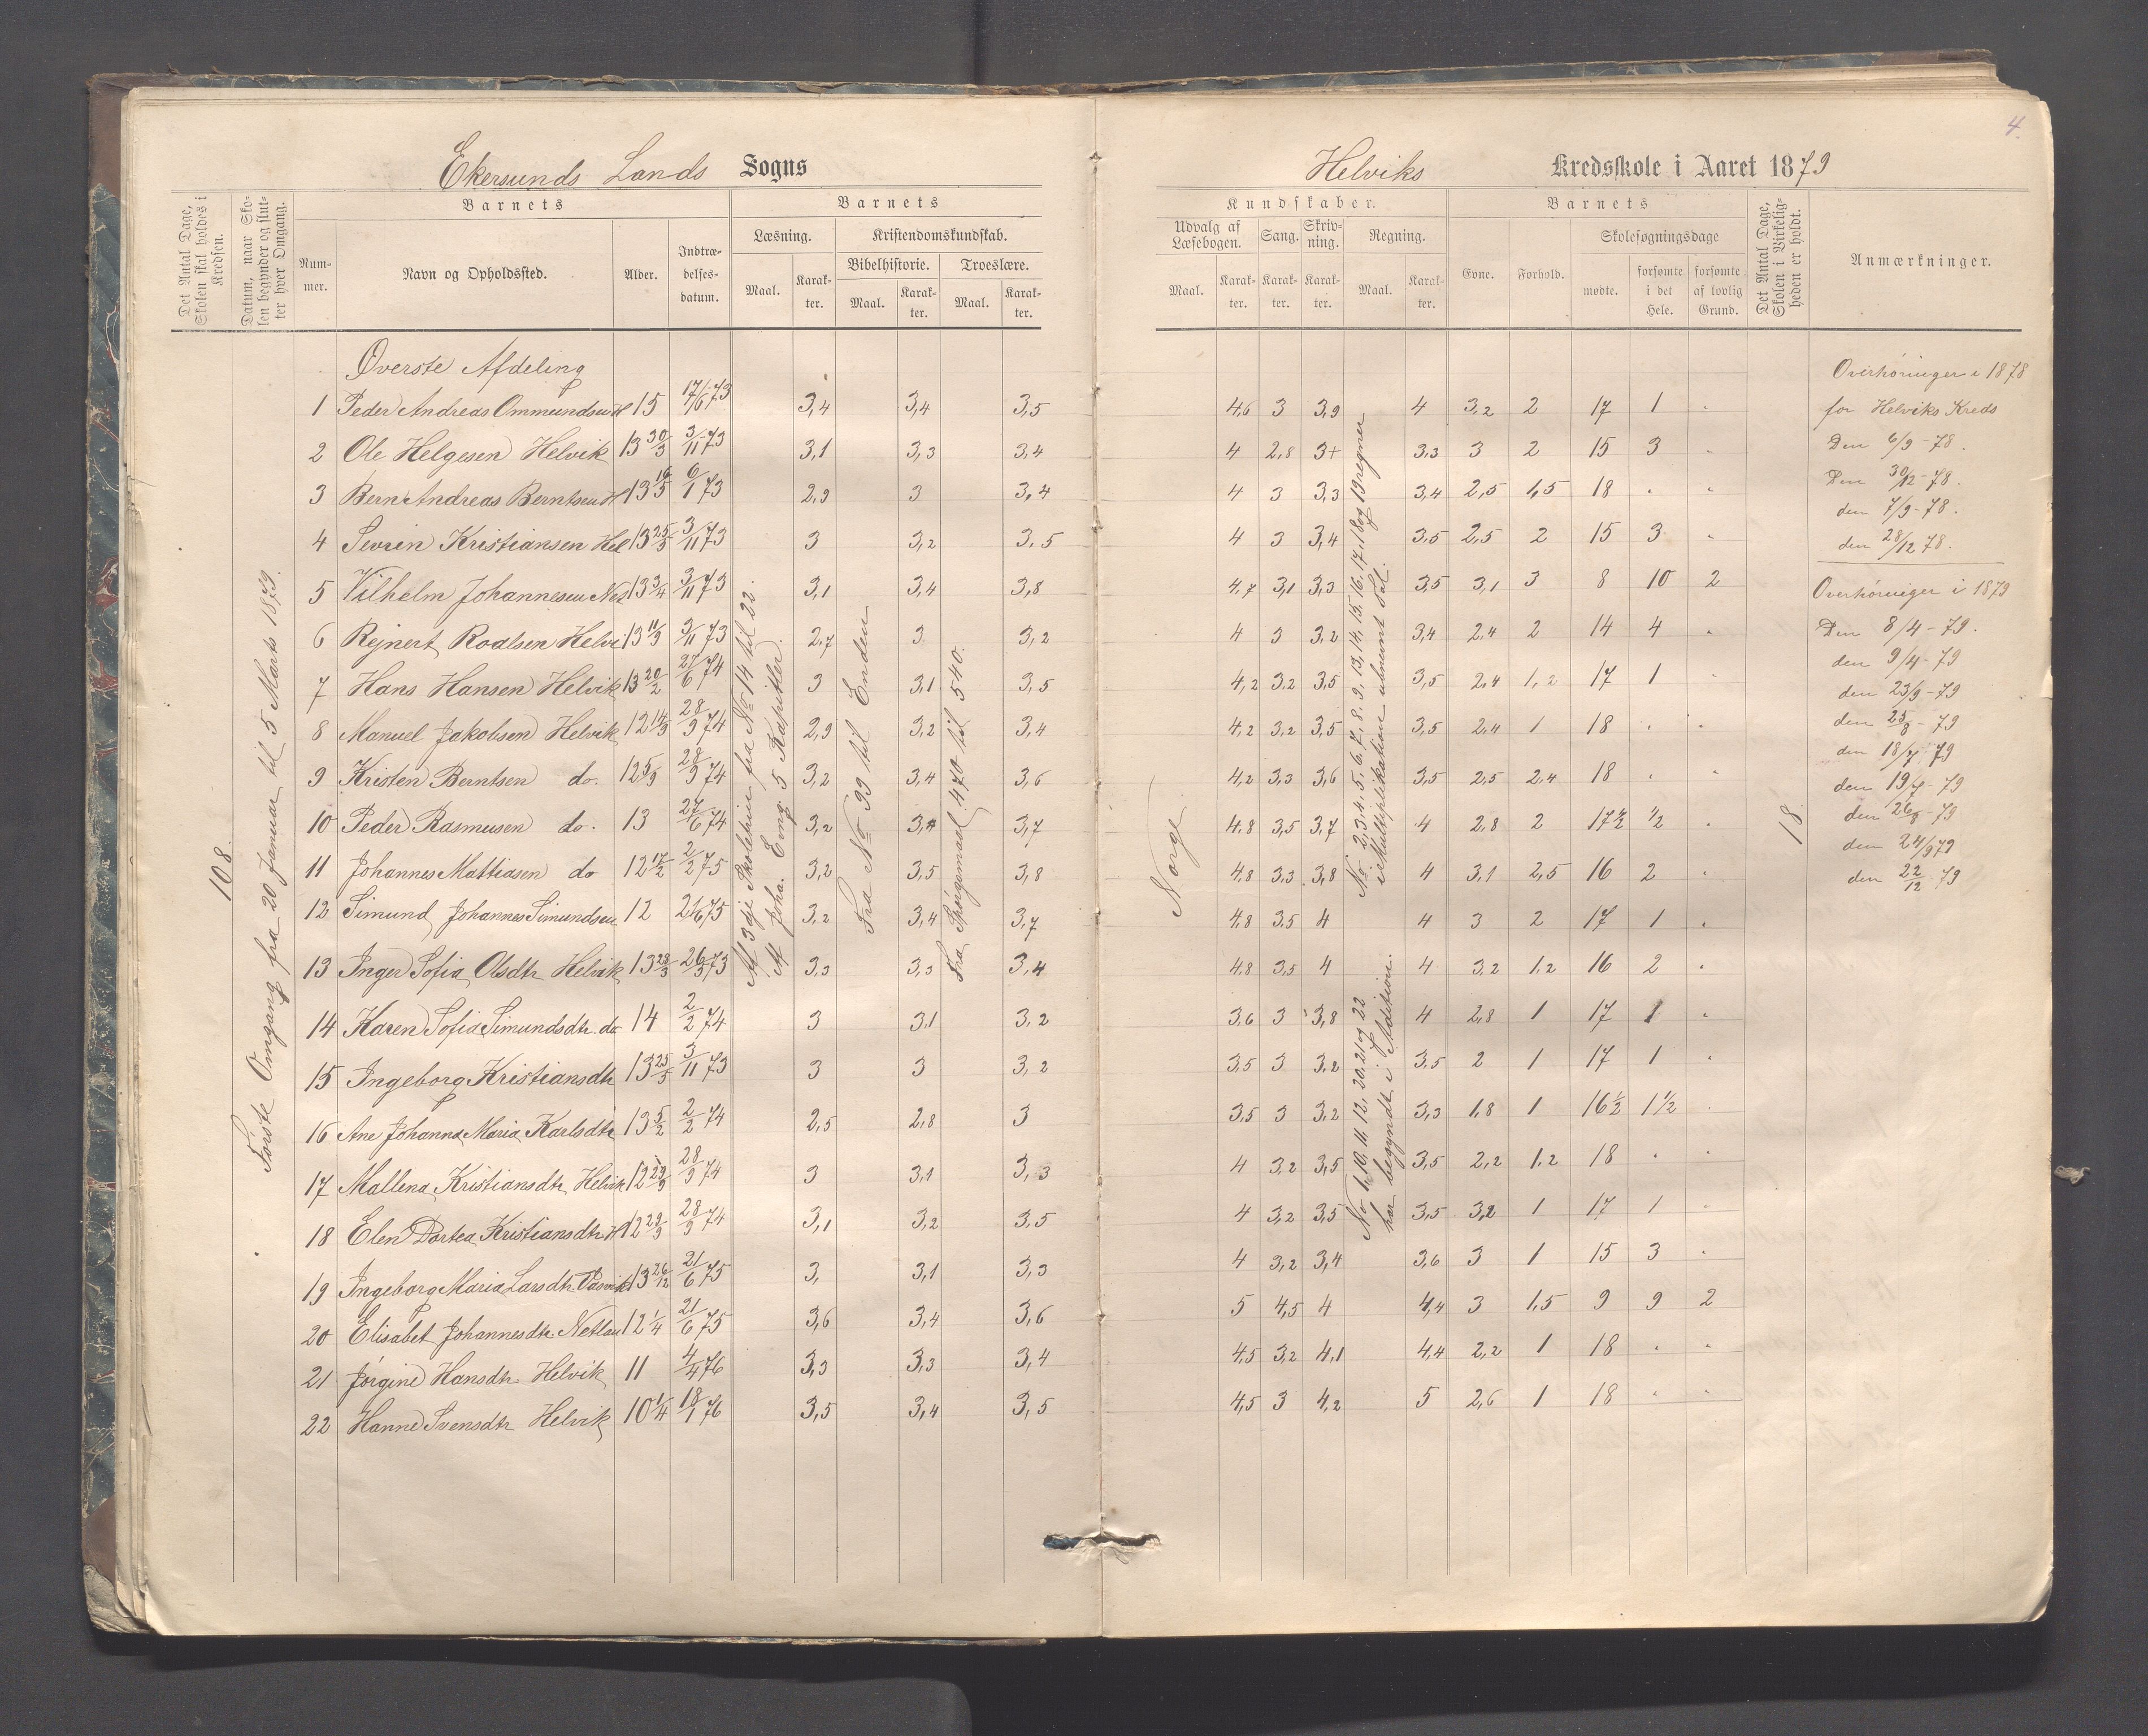 4.
Ekersunds Lands Sogns
Helviks Kredsskole i Aaret 1879
Det Antal Dage, Skolen skal holdes i Kredsen.
Datum, naar Skolen begynder og slutter hver Omgang.
Barnets
Nummer.
Navn og Opholdssted.
Alder.
Indtrædelsesdatum.
Barnets
Læsning.
Maal.
Karakter.
Kristendomskundskab.
Bibelhistorie.
Maal.
Karakter.
Troeslære.
Maal.
Karakter.
Kundskaber.
Udvalg af Læsebogen.
Maal.
Karakter.
Sang.
Karakter.
Skrivning.
Karakter.
Regning.
Maal.
Karakter.
Barnets
Evne.
Forhold.
Skolesøgningsdage
mødte.
forsømte i det Hele.
forsømte af lovlig Grund.
Det Antal Dage, Skolen i Virkeligheden er holdt.
Anmærkninger.
108.
Første Omgang fra 20 Januar til 5 Marts 1879.
Øverste Afdeling
1 Peder Andreas Ommundsen H 15 17/6-73 3,4 3,4 3,5 4,6 3 3,9 4 3,2 2 17 1 "
2 Ole Helgesen Helvik 13 30/3 3/11 73 3,1 3,3 3,4 4 2,8 3+ 3,3 3 2 15 3 "
3 Bern Andreas Berntsen H 13 16/5 6/1 73 2,9 3 3,4 4 3 3,3 3,4 2,5 1,5 18 " "
4 Sevrin Kristiansen Hel 13 25/3 3/11 73 3 3,2 3,5 4 3 3,4 3,5 2,5 2 15 3 "
5 Vilhelm Johannesen Net 13 3/4 3/11 73 3,1 3,4 3,8 4,7 3,1 3,3 3,5 3,1 3 8 10 2
6 Rejnert Roalsen Helvi 13 11/9 3/11 73 2,7 3 3,2 4 3 3,2 3,4 2,4 2 14 4 "
7 Hans Hansen Helvik 13 20/2 27/6 74 3 3,1 3,5 4,2 3,2 3,5 3,5 2,4 1,2 17 1 "
8 Manuel Jakobsen Helvik 12 14/9 28/9 74 2,9 3,2 3,4 4,2 3,2 3,5 3,5 2,4 1 18 " "
9 Kristen Berntsen do. 12 5/9 28/9 74 3,2 3,4 3,6 4,2 3,3 3,6 3,5 2,5 2,4 18 " "
10 Peder Rasmusen do. 13 27/6 74 3,2 3,4 3,7 4,8 3,5 3,7 4 2,8 2 17 1/2 1/2 "
11 Johannes Mattiasen do 12 17/2 2/2 75 3,2 3,5 3,8 4,8 3,3 3,8 4 3,1 2,5 16 2 "
12 Simund Johannes Simundsen 12 21/6 75 3,2 3,4 3,7 4,8 3,5 4 4 3 2 17 1 "
13 Inger Sofia Olsdtr Helvik 13 28/3 26/3 73 3,3 3,3 3,4 4,8 3,5 4 4 3,2 1,2 16 2 "
14 Karen Sofia Simundsdtr. do 14 2/2 74 3 3,1 3,2 3,6 3 3,8 4 2,8 1 17 1 "
15 Ingeborg Kristiansdtr 13 25/5 3/11 73 3 3 3,2 3,5 3 3,2 3,5 2 1 17 1 "
16 Ane Johanna Maria Karlsdtr 13 5/2 2/2 74 2,5 2,8 3 3,5 3 3,2 3,3 1,8 1 16 1/2 1 1/2 "
17 Mallena Kristiansdtr Helvik 12 29/9 28/9 74 3 3,1 3,3 4 3,2 3,5 3,5 2,2 1,2 18 " "
18 Elen Dortea Kristiansdtr H 12 29/9 28/9 74 3,1 3,2 3,5 4 3,2 3,5 3,5 3,2 1 17 1 "
19 Ingeborg Maria Larsdtr 13 26/12 21/6 75 3, 3,1 3,3 4 3,2 3,4 3,6 3 1 15 3 "
20 Elisabet Johannesdtr Netlan 12 1/4 21/6 75 3,6 3,4 3,6 5 4,5 4 4,4 3 1,5 9 9 2
21 Jørgine Hansdtr Helvik 11 4/4 76 3,3 3,3 3,4 4,5 3,2 4,1 4,4 2,2 1 18 " "
22 Hanne Svensdtr Helvik 10 1/4 18/1 76 3,5 3,4 3,5 4,5 3 4,2 5 2,6 1 18 " "
Af 3dje Skoletrin fra No 14 til 22.
Af Joha. Evng. 5 Kapitler.
Fra No 99 til Enden
Fra Spørgsmaal 470 til 540.
Norge
No 2,3,4,5,6,7,8,9,13,14,15,16,17,18 og 19 regner
i Multiplikation ubnevnt Tal.
No 1, 10, 11, 12, 20, 21 og 22
har begyndt i Addition.
18
Overhøringer i 1878
for Helviks Kreds
Den 6/9-78.
Den 30/12-78.
den 7/9-78.
den 28/12 78.
Overhøringer i 1879
Den 8/4-79.
den 9/4-79
den 23/9-79
den 25/8-79
den 18/7 79
den 19/7-79
den 26/8-79
den 24/9 79
den 22/12 79